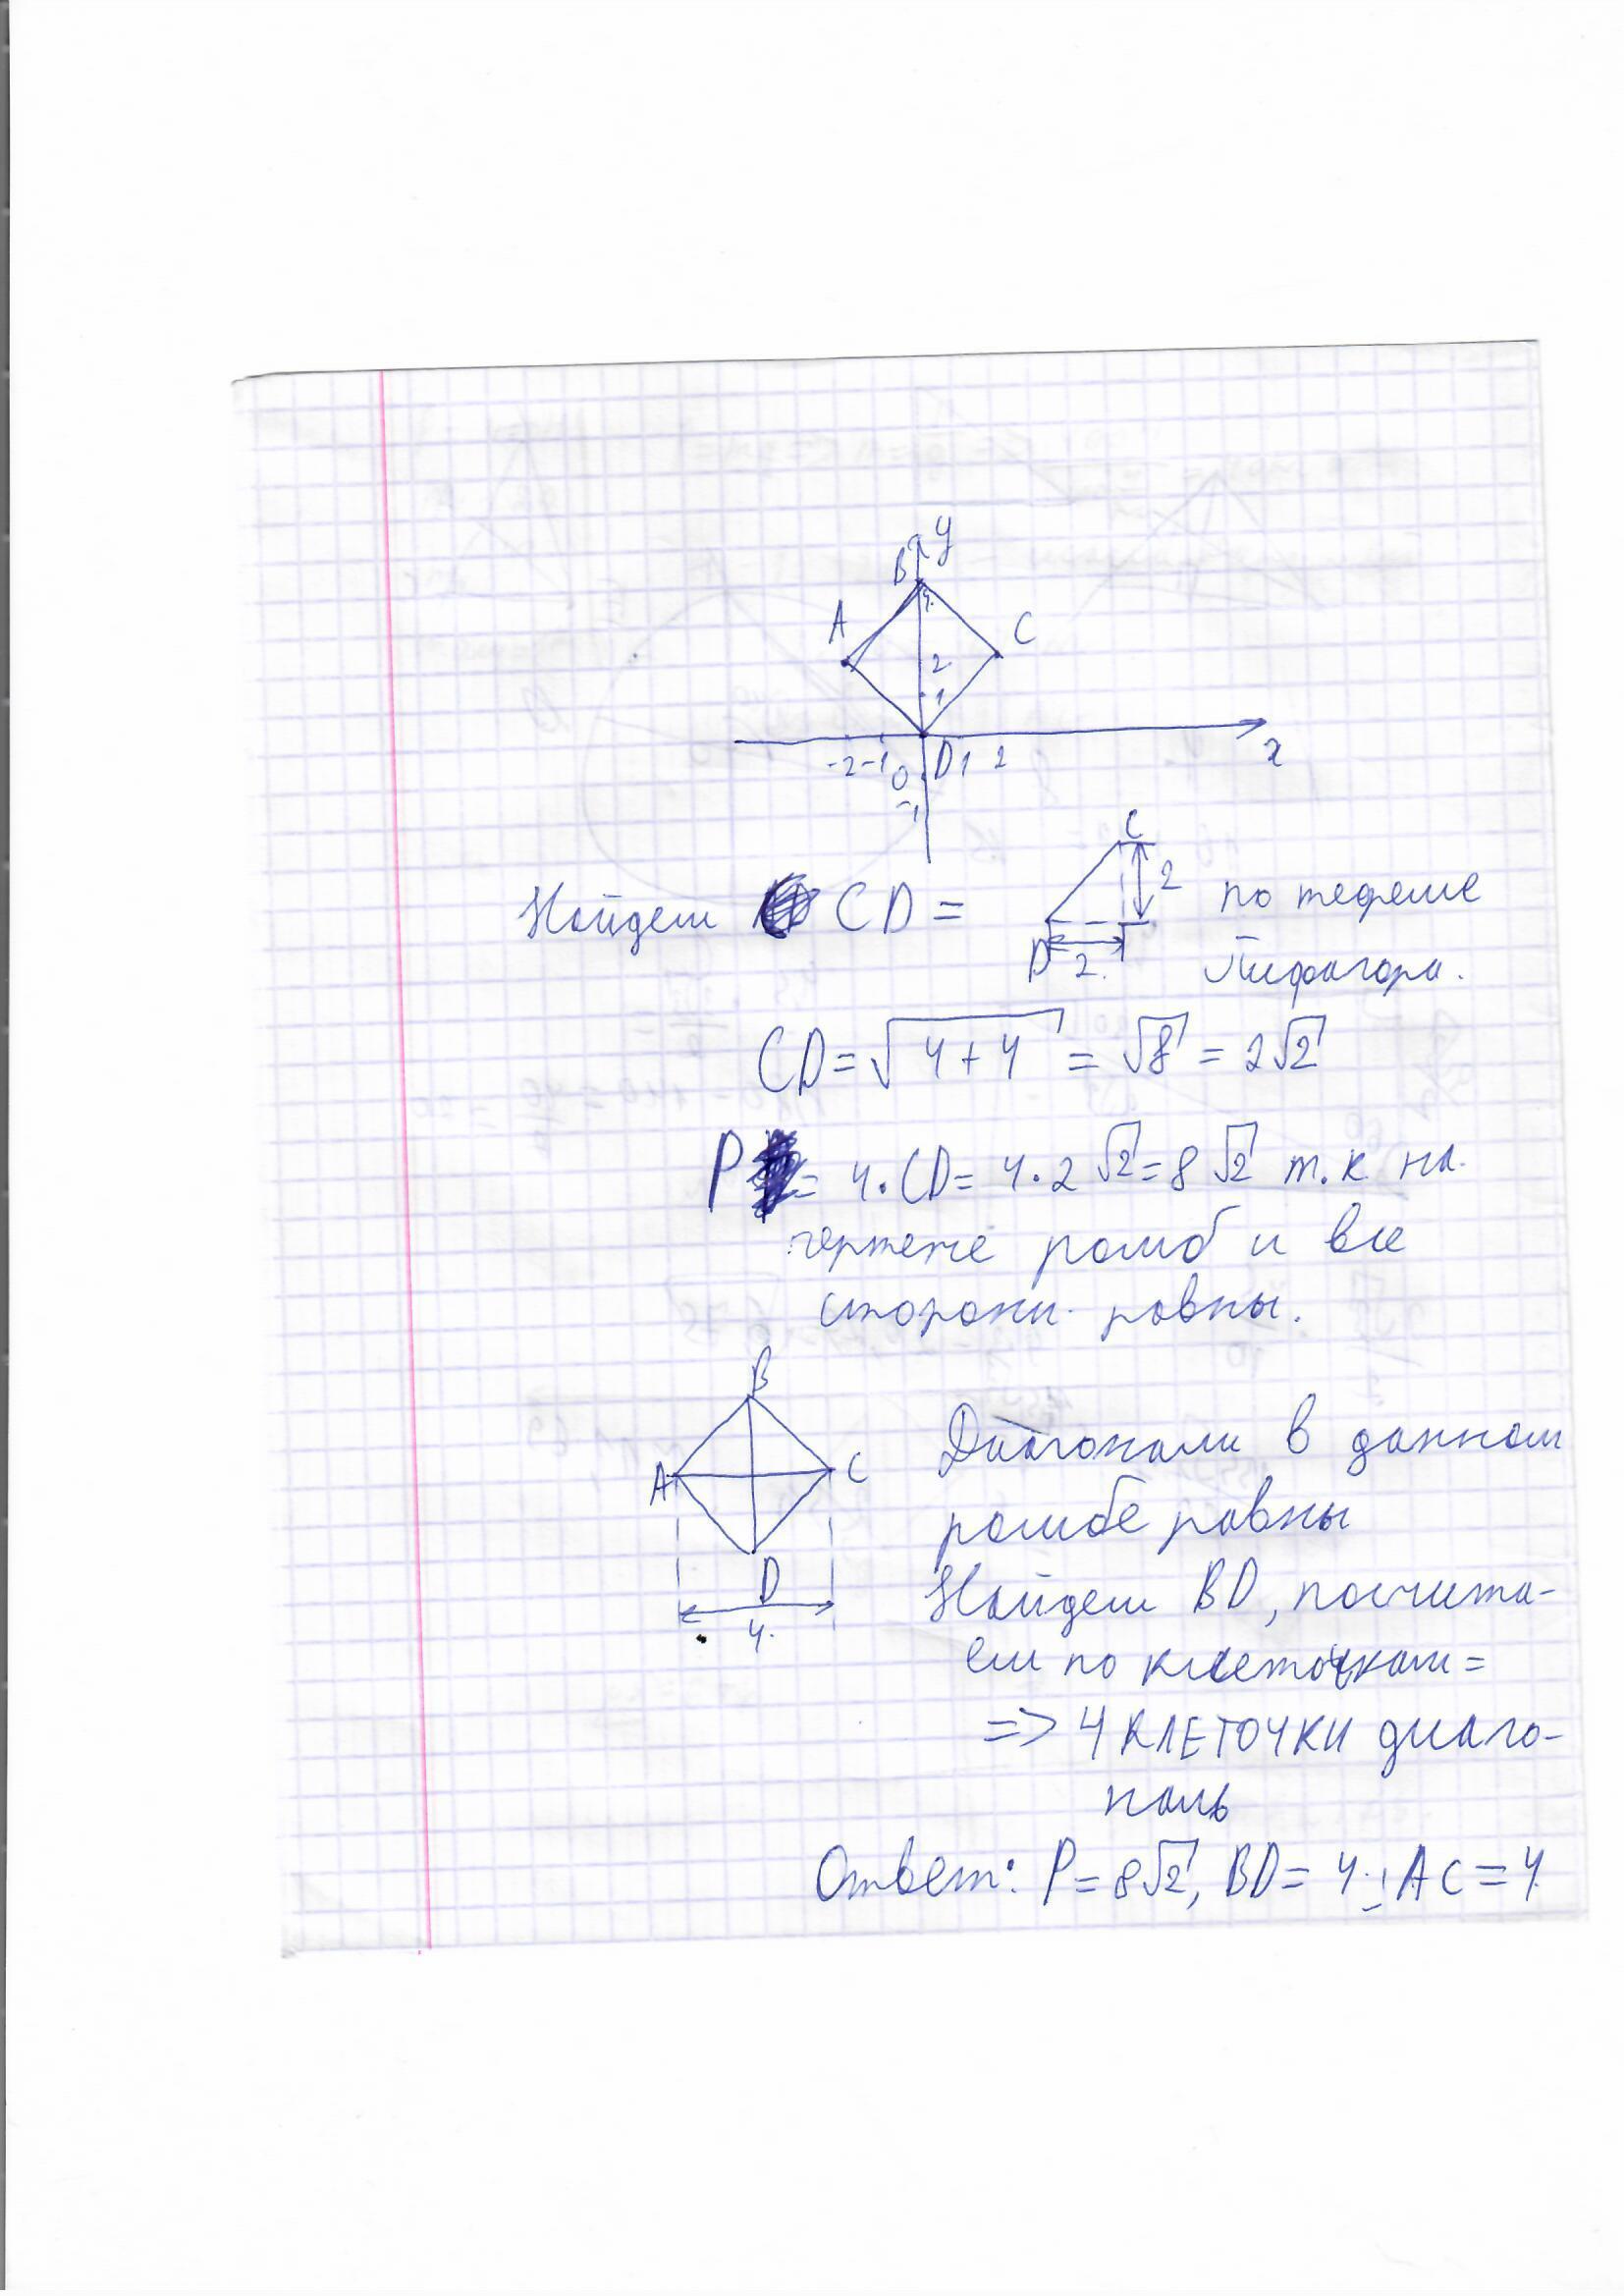 y
B
4
A
C
2
1
-2 -1 0 D 1 2
x
-1
C
Найдем CD = 2 по теореме
D 2 Пифагора.
CD = √4+4 = √8 = 2√2
P = 4·CD = 4·2√2 = 8√2 т.к. на
чертеже ромб и все
стороны равны.
B
A C Диагонали в данном
ромбе равны
D Найдем BD, посчита-
4 ем по клеточкам =
=> 4 КЛЕТОЧКИ диаго-
наль
Ответ: P = 8√2, BD = 4; AC = 4